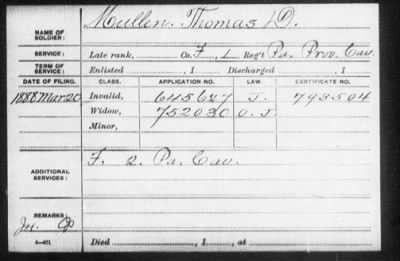 NAME OF SOLDIER: Mullen. Thomas D.
SERVICE: Late rank, Co. F, 1 Reg't Pa. Prov. Cav.
TERM OF SERVICE: Enlisted , 1 Discharged , 1
DATE OF FILING. CLASS. APPLICATION NO. LAW. CERTIFICATE NO.
1888 Mar 20 Invalid, 645627 J. 793504
Widow, 752030 O. J.
Minor,
ADDITIONAL SERVICES: F. 2. Pa. Cav.
REMARKS:
Died , 1 , at